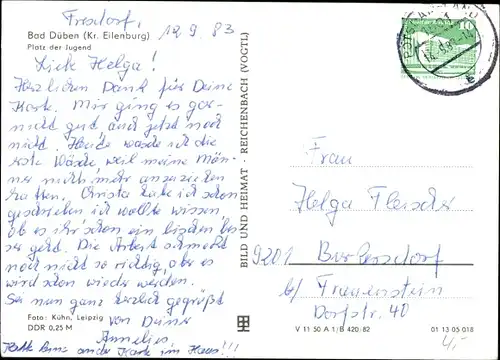 Fresdorf, 12.9.83
Bad Düben (Kr. Eilenburg)
Platz der Jugend
Liebe Helga!
Herzlichen Dank für Deine
Karte. Mir ging es gar
nicht gut auch jetzt noch
nicht. Heute wasche ich die
erste Wäsche weil meine Män-
ner nichts mehr anzuziehen
hatten. Christa habe ich schon
geschrieben ich wollte wissen
ob es ihr schon ein bischen bes
ser geht. Die Arbeit schmeckt
noch nicht so richtig, aber es
wird schon wieder werden.
Sei nun ganz herzlich gegrüßt
von Deiner
Annelies
Foto: Kühn, Leipzig
DDR 0,25 M
Hatte keine andere Karte im Haus!!!
BILD UND HEIMAT · REICHENBACH (VOGTL)
10
Frau
Helga Fleischer
9201 Burkersdorf
b/ Frauenstein
Dorfstr. 40
V 11 50 A 1/B 420/82
01 13 05 018
4,-